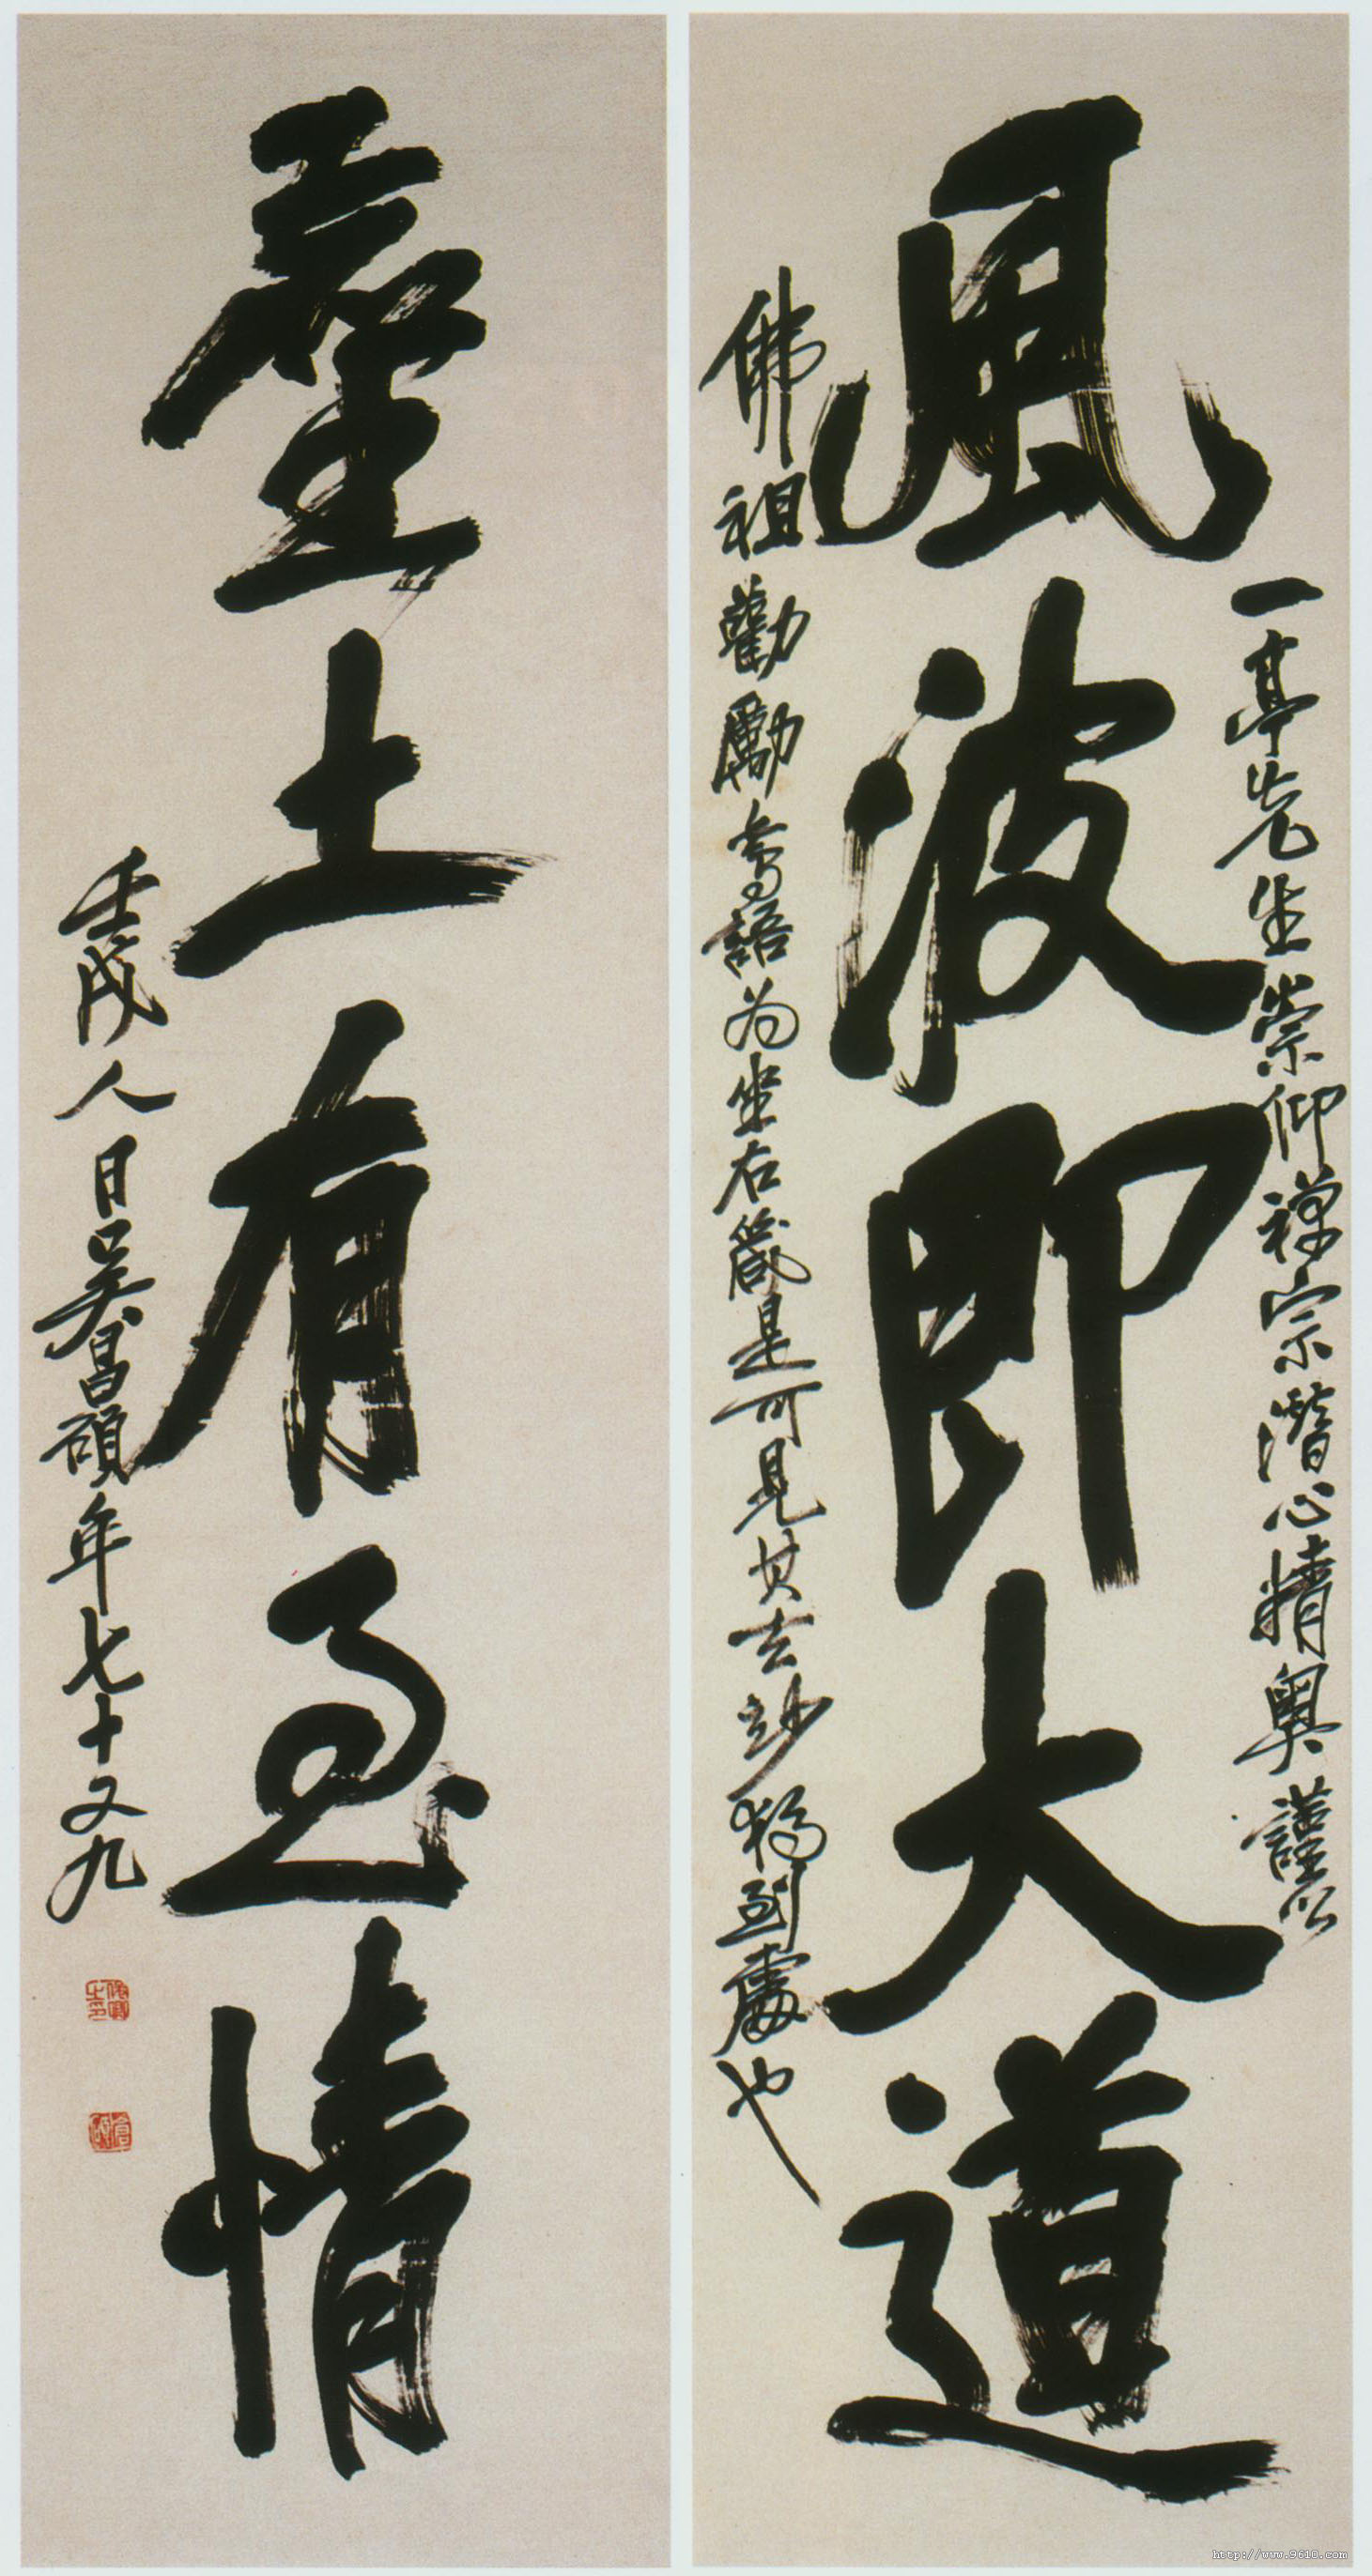 風波即大道
一亭先生崇仰禪宗潛心精奧謹以
佛祖勸勵寄語为坐右箴是可見其玄妙獨到處也
塵土有至情
壬戌人日吳昌碩年七十又九
http://www.9610.com